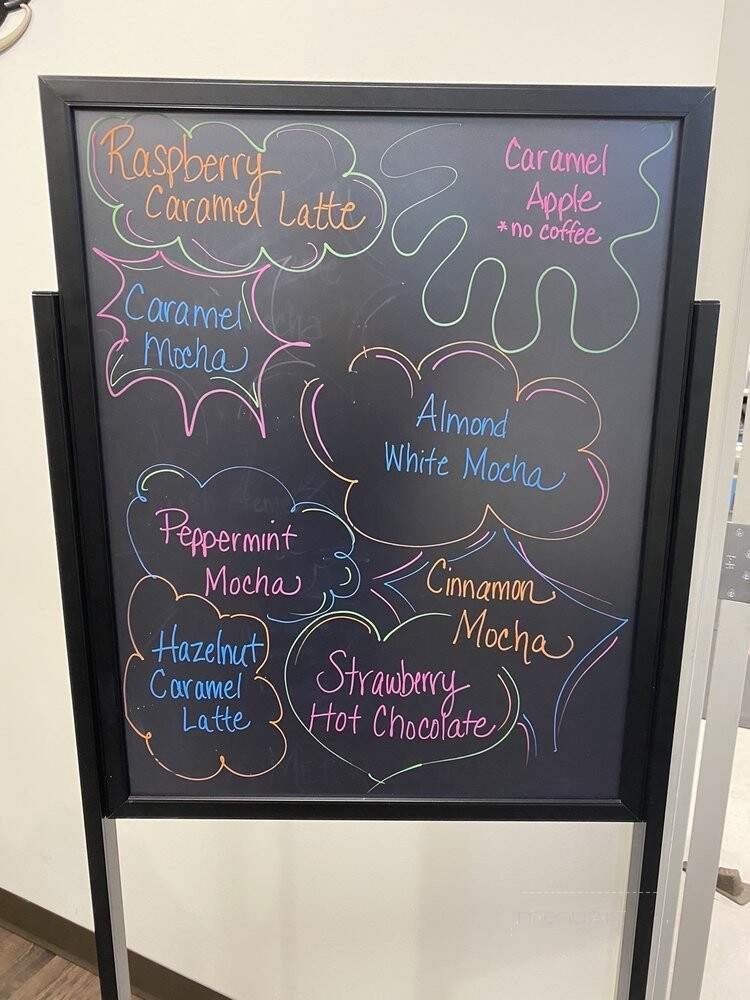 Raspberry
Caramel Latte
Caramel
Apple
*no coffee
Caramel
Mocha
Almond
White Mocha
Peppermint
Mocha
Cinnamon
Mocha
Hazelnut
Caramel
Latte
Strawberry
Hot Chocolate